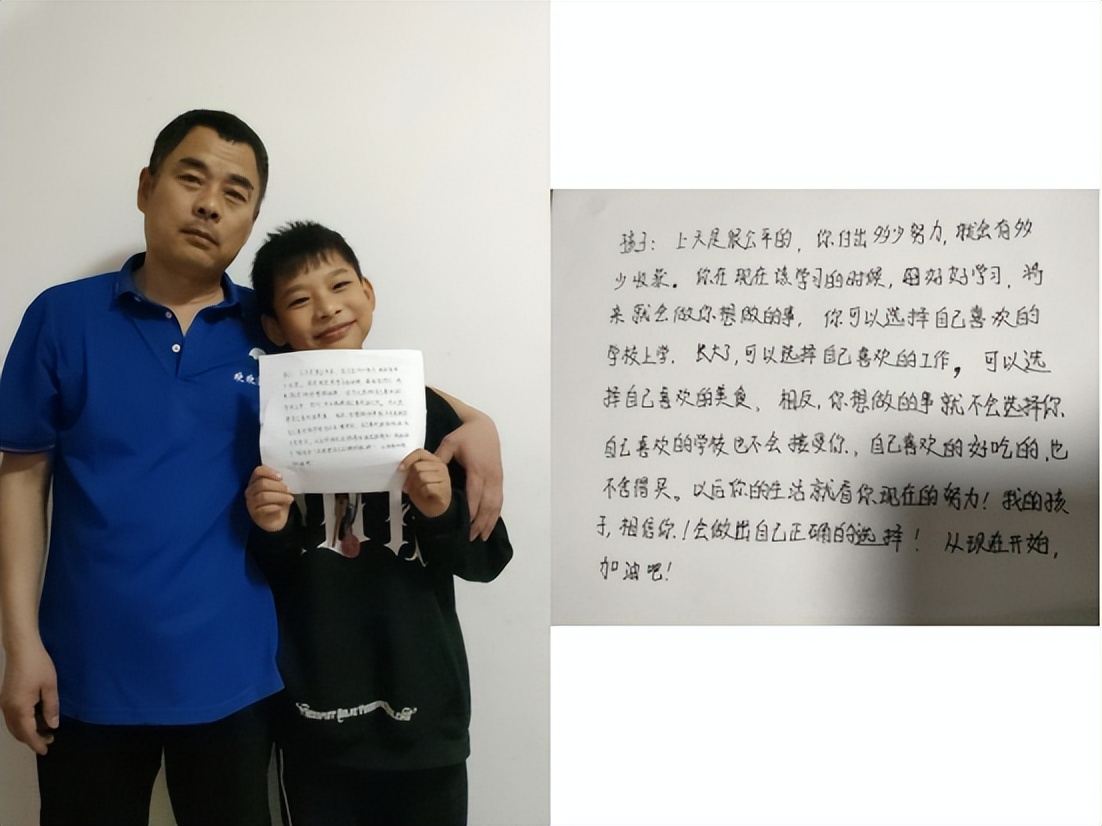 孩子：上天是很公平的，你付出多少努力，就会有多
少收获。你在现在该学习的时候，因好好学习，将
来就会做你想做的事，你可以选择自己喜欢的
学校上学，长大了，可以选择自己喜欢的工作，可以选
择自己喜欢的美食，相反，你想做的事就不会选择你、
自己喜欢的学校也不会接受你，自己喜欢的好吃的，也
不舍得买。以后你的生活就看你现在的努力！我的孩
子，相信你！会做出自己正确的选择！从现在开始，
加油吧！